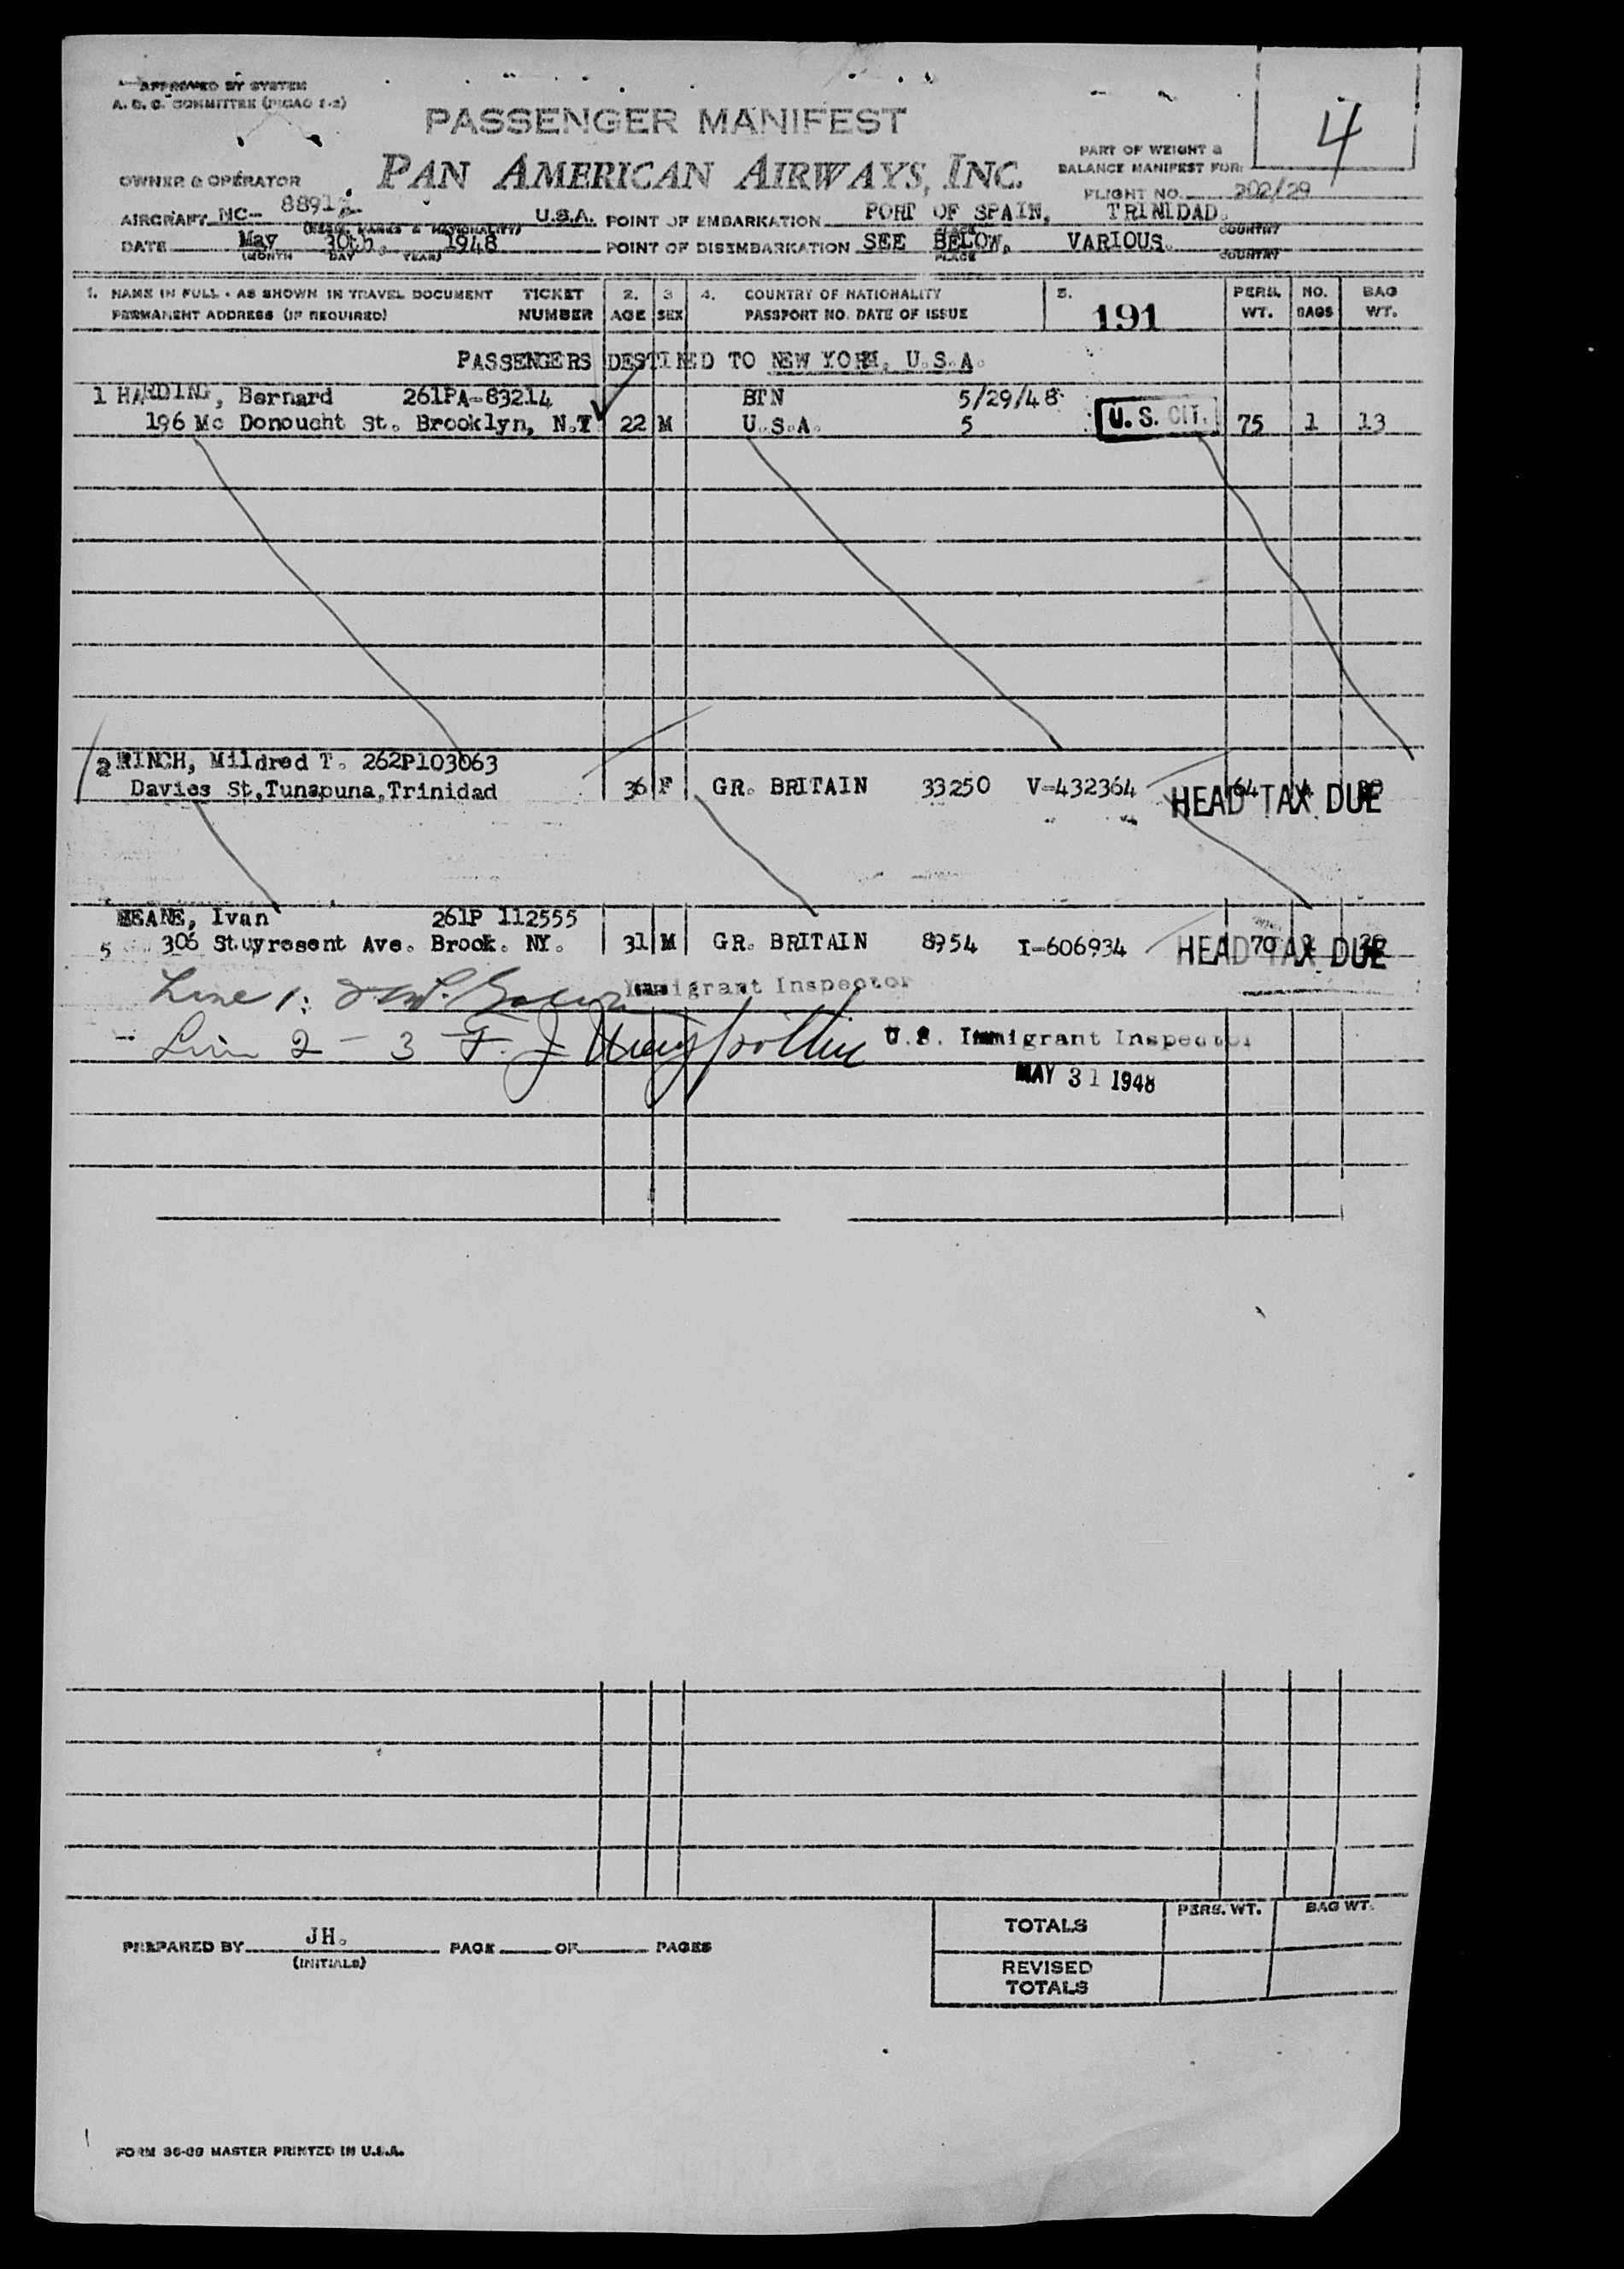 APPROVED BY SYSTEM
A. D. C. COMMITTEE (PICAO 1-2)
4
PASSENGER MANIFEST
PAN AMERICAN AIRWAYS, INC.
PART OF WEIGHT &
BALANCE MANIFEST FOR:
OWNER & OPERATOR
FLIGHT NO. 202/29
AIRCRAFT NC- 8891 U.S.A. POINT OF EMBARKATION PORT OF SPAIN, TRINIDAD.
(REGIS. MARKS & NATIONALITY) PLACE COUNTRY
DATE May 30th, 1948 POINT OF DISEMBARKATION SEE BELOW, VARIOUS.
(MONTH DAY YEAR) PLACE COUNTRY
1. NAME IN FULL - AS SHOWN IN TRAVEL DOCUMENT TICKET 2. 3 4. COUNTRY OF NATIONALITY 5. PERS. NO. BAG
PERMANENT ADDRESS (IF REQUIRED) NUMBER AGE SEX PASSPORT NO. DATE OF ISSUE 191 WT. BAGS WT.
PASSENGERS DESTINED TO NEW YORK, U.S.A.
1 HARDING, Bernard 261PA-83214 BTN 5/29/48
196 Mc Donoucht St. Brooklyn, N.Y 22 M U.S.A. 5 U.S. CIT. 75 1 13
2 RINCH, Mildred T. 262P103063
Davies St,Tunapuna,Trinidad 36 F GR. BRITAIN 33250 V-432364 64 HEAD TAX DUE
MEANE, Ivan 261P 112555
5 306 Stuyresent Ave. Brook. NY. 31 M GR. BRITAIN 8954 I-606934 70 HEAD TAX DUE
Line 1: Immigrant Inspector
Line 2 - 3 F. J. U.S. Immigrant Inspector
MAY 31 1948
PREPARED BY JH. PAGE OF PAGES
(INITIALS)
TOTALS PERS. WT. BAG WT.
REVISED
TOTALS
FORM 36-09 MASTER PRINTED IN U.S.A.